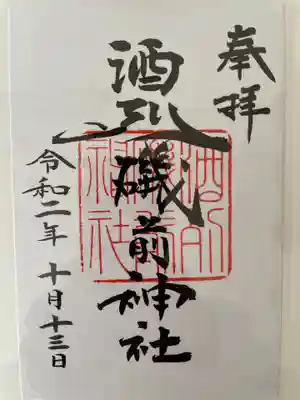 奉拝
酒列磯前神社
令和二年十月十三日